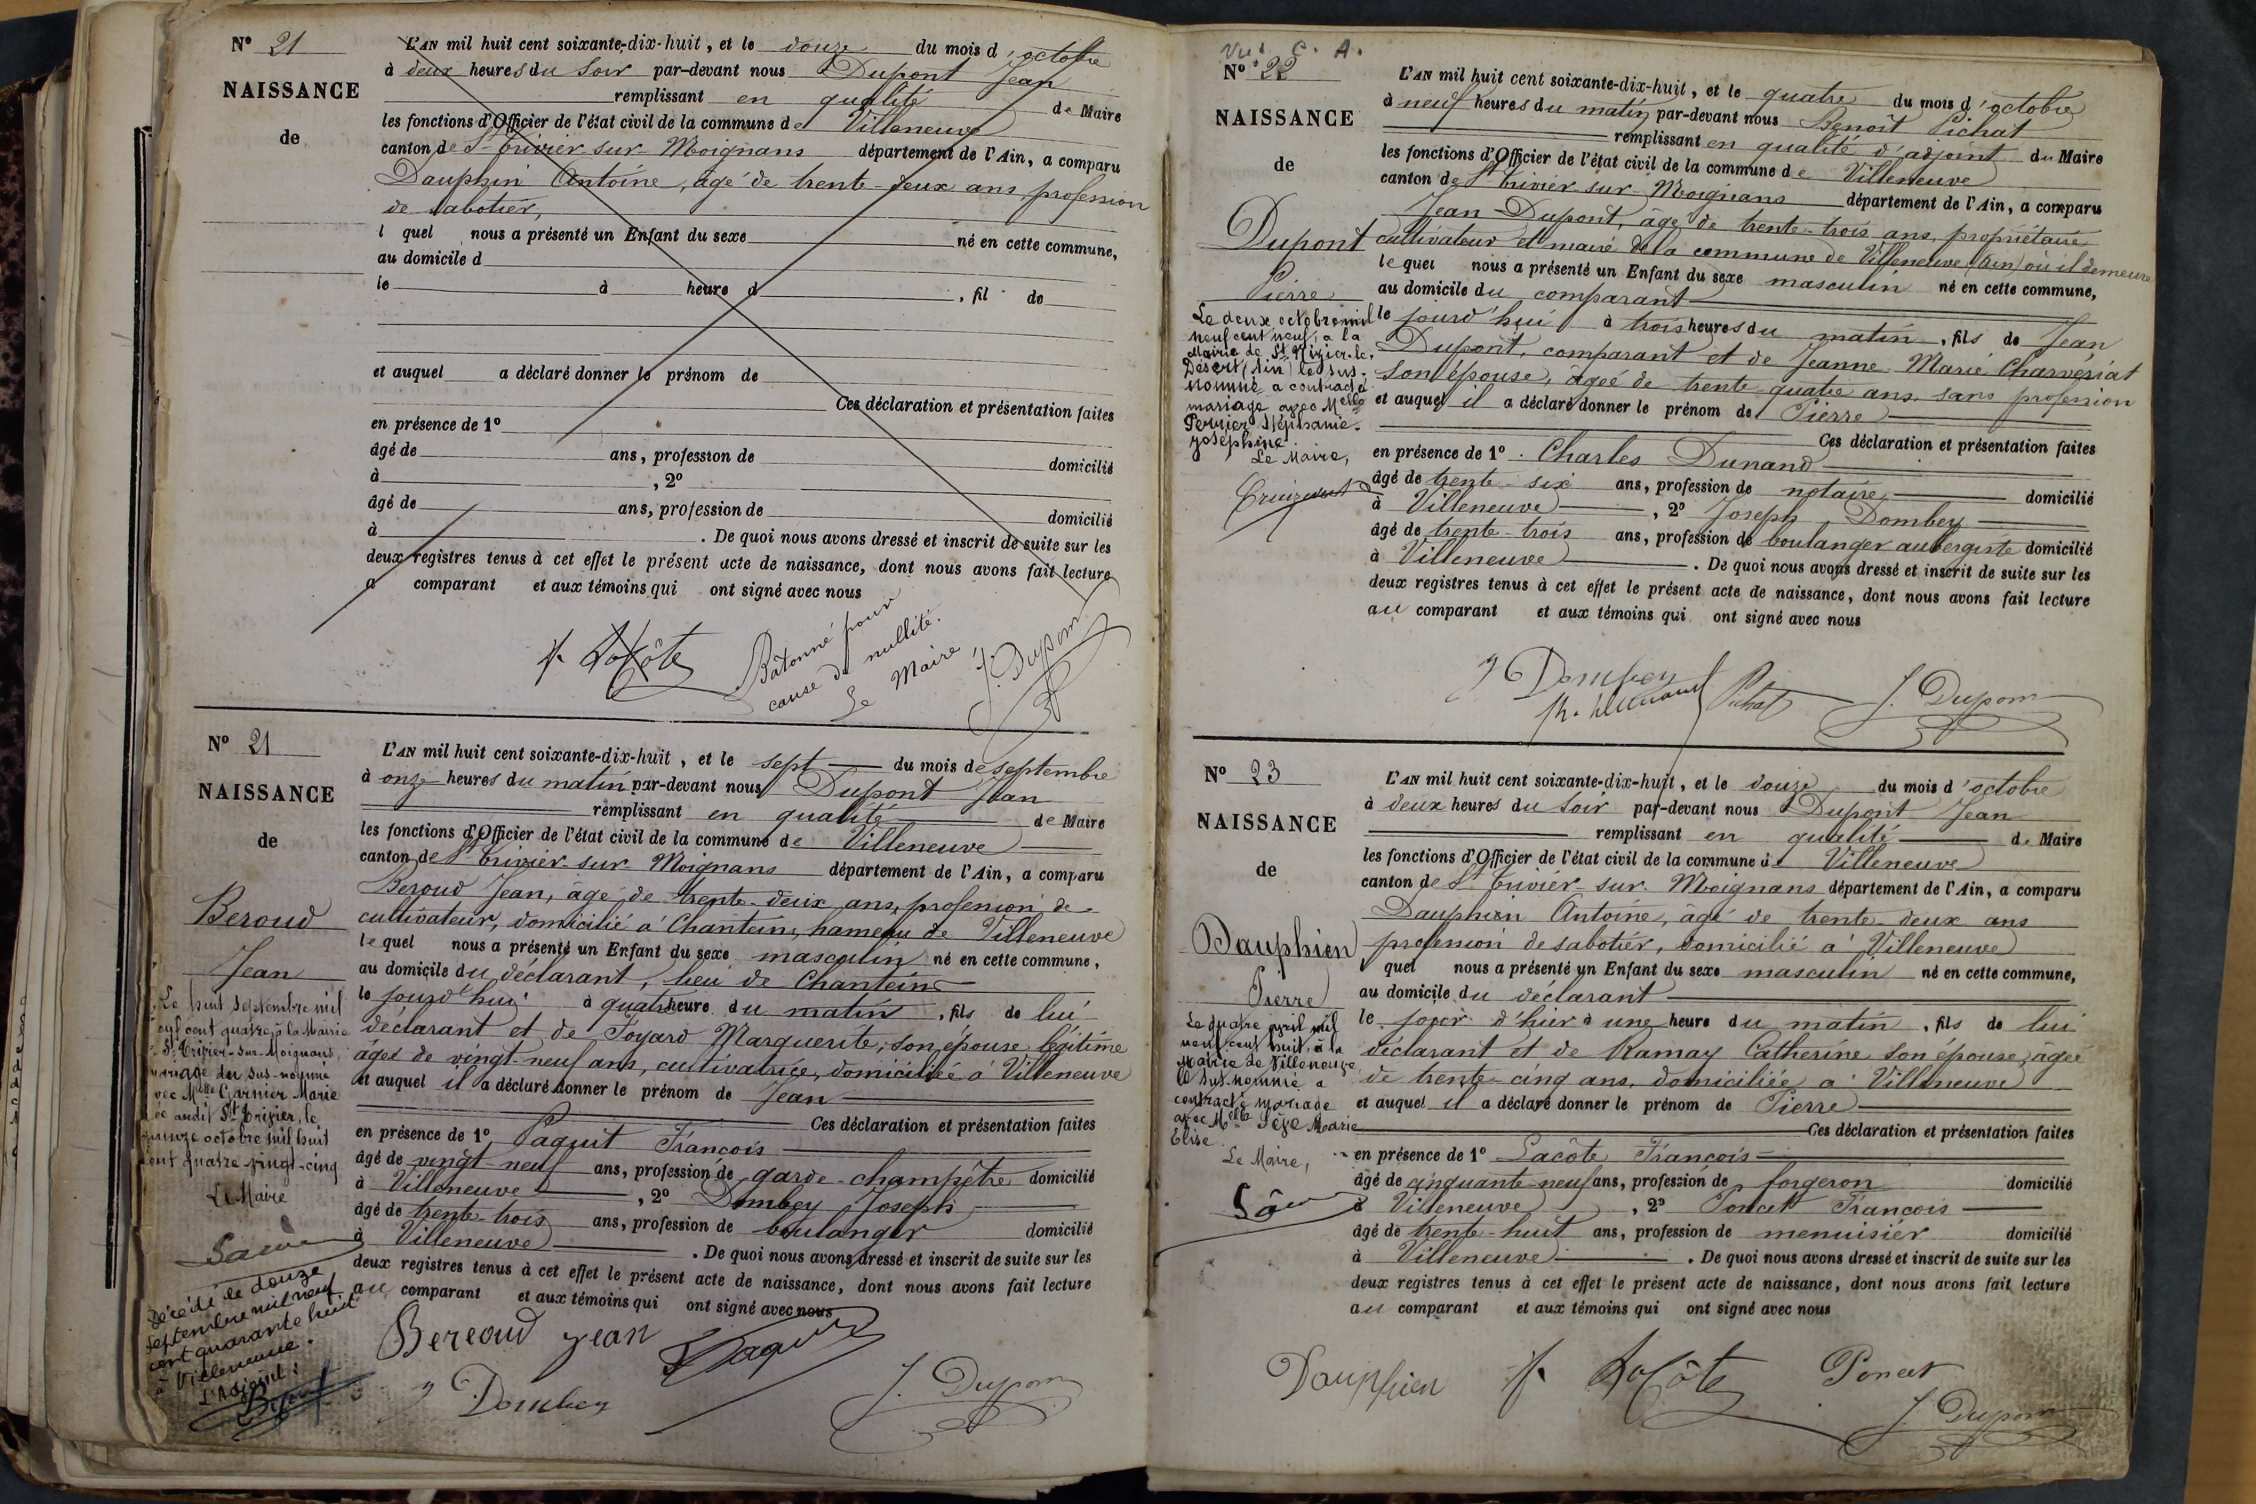 N° 21
NAISSANCE
de
L'AN mil huit cent soixante-dix-huit, et le douze du mois d'octobre
à deux heures du soir par-devant nous Dupont Jean
remplissant en qualité de Maire
les fonctions d'Officier de l'état civil de la commune de Villeneuve
canton de St Trivier-sur-Moignans département de l'Ain, a comparu
Dauphin Antoine, âgé de trente-deux ans, profession
de sabotier,
l quel nous a présenté un Enfant du sexe né en cette commune,
au domicile d
le à heure d , fil de
et auquel a déclaré donner le prénom de
Ces déclaration et présentation faites
en présence de 1°
âgé de ans, profession de domicilié
à , 2°
âgé de ans, profession de domicilié
à . De quoi nous avons dressé et inscrit de suite sur les
deux registres tenus à cet effet le présent acte de naissance, dont nous avons fait lecture
a comparant et aux témoins qui ont signé avec nous
f. LaCôte
Bâtonné pour
cause de nullité.
Le Maire,
J. Dupont
N° 21
NAISSANCE
de
Beroud
Jean
Le huit septembre mil
neuf cent quatre, à la Mairie
St Trivier-sur-Moignans,
mariage du sus-nommé
avec Melle Garnier Marie
née audit St Trivier, le
quinze octobre mil huit
cent quatre-vingt-cinq
Le Maire
Décédé le douze
septembre mil neuf
cent quarante huit
à Villeneuve.
L'Adjoint:
L'AN mil huit cent soixante-dix-huit, et le sept du mois de septembre
à onze heures du matin par-devant nous Dupont Jean
remplissant en qualité de Maire
les fonctions d'Officier de l'état civil de la commune de Villeneuve
canton de St Trivier-sur-Moignans département de l'Ain, a comparu
Beroud Jean, âgé de trente-deux ans, profession de
cultivateur, domicilié à Chanteins, hameau de Villeneuve
lequel nous a présenté un Enfant du sexe masculin né en cette commune,
au domicile du déclarant, lieu de Chanteins
le jourd'hui à quatre heure du matin, fils de lui
déclarant et de Foyard Marguerite, son épouse légitime
âgée de vingt-neuf ans, cultivatrice, domiciliée à Villeneuve
et auquel il a déclaré donner le prénom de Jean
Ces déclaration et présentation faites
en présence de 1° Paquit François
âgé de vingt neuf ans, profession de garde-champêtre domicilié
à Villeneuve , 2° Dombey Joseph
âgé de trente-trois ans, profession de boulanger domicilié
à Villeneuve . De quoi nous avons dressé et inscrit de suite sur les
deux registres tenus à cet effet le présent acte de naissance, dont nous avons fait lecture
au comparant et aux témoins qui ont signé avec nous
Bereoud jean
J Dombey
J. Dupont
Vu: C. A.
N° 22
NAISSANCE
de
Dupont
Pierre
Le deux octobre mil
neuf cent neuf, à la
Mairie de St Nizier-le-
Désert (Ain) le sus-
nommé a contracté
mariage avec Melle
Perrier Stéphanie-
Joséphine
Le Maire,
L'AN mil huit cent soixante-dix-huit, et le quatre du mois d'octobre
à neuf heures du matin par-devant nous Benoît Pichat
remplissant en qualité d'adjoint du Maire
les fonctions d'Officier de l'état civil de la commune de Villeneuve
canton de St Trivier sur-Moignans département de l'Ain, a comparu
Jean Dupont, âgé de trente-trois ans, propriétaire
cultivateur et maire de la commune de Villeneuve (Ain) où il demeure
lequel nous a présenté un Enfant du sexe masculin né en cette commune,
au domicile du comparant
le jourd'hui à trois heures du matin, fils de Jean
Dupont, comparant et de Jeanne Marie Charvériat
son épouse, âgée de trente-quatre ans, sans profession
et auquel il a déclaré donner le prénom de Pierre
Ces déclaration et présentation faites
en présence de 1° Charles Dunand
âgé de trente-six ans, profession de notaire domicilié
à Villeneuve , 2° Joseph Dombey
âgé de trente-trois ans, profession de boulanger aubergiste domicilié
à Villeneuve . De quoi nous avons dressé et inscrit de suite sur les
deux registres tenus à cet effet le présent acte de naissance, dont nous avons fait lecture
au comparant et aux témoins qui ont signé avec nous
J Dombey
Pichat
J. Dupont
N° 23
NAISSANCE
de
Dauphien
Pierre
Le quatre avril mil
neuf cent huit, à la
Mairie de Villeneuve
le susnommé a
contracté mariage
avec Melle Fège Marie
Elise
Le Maire,
L'AN mil huit cent soixante-dix-huit, et le douze du mois d'octobre
à deux heures du soir par-devant nous Dupont Jean
remplissant en qualité de Maire
les fonctions d'Officier de l'état civil de la commune de Villeneuve
canton de St Trivier-sur-Moignans département de l'Ain, a comparu
Dauphien Antoine, âgé de trente-deux ans
profession de sabotier, domicilié à Villeneuve
quel nous a présenté un Enfant du sexe masculin né en cette commune,
au domicile du déclarant
le jour d'hier à une heure du matin, fils de lui
déclarant et de Ramay Catherine son épouse, âgée
de trente-cinq ans, domiciliée à Villeneuve
et auquel il a déclaré donner le prénom de Pierre
Ces déclaration et présentation faites
en présence de 1° Lacôte François
âgé de cinquante-neuf ans, profession de forgeron domicilié
à Villeneuve , 2° Poncet François
âgé de trente-huit ans, profession de menuisier domicilié
à Villeneuve . De quoi nous avons dressé et inscrit de suite sur les
deux registres tenus à cet effet le présent acte de naissance, dont nous avons fait lecture
au comparant et aux témoins qui ont signé avec nous
Dauphien
f. LaCôte
Poncet
J. Dupont